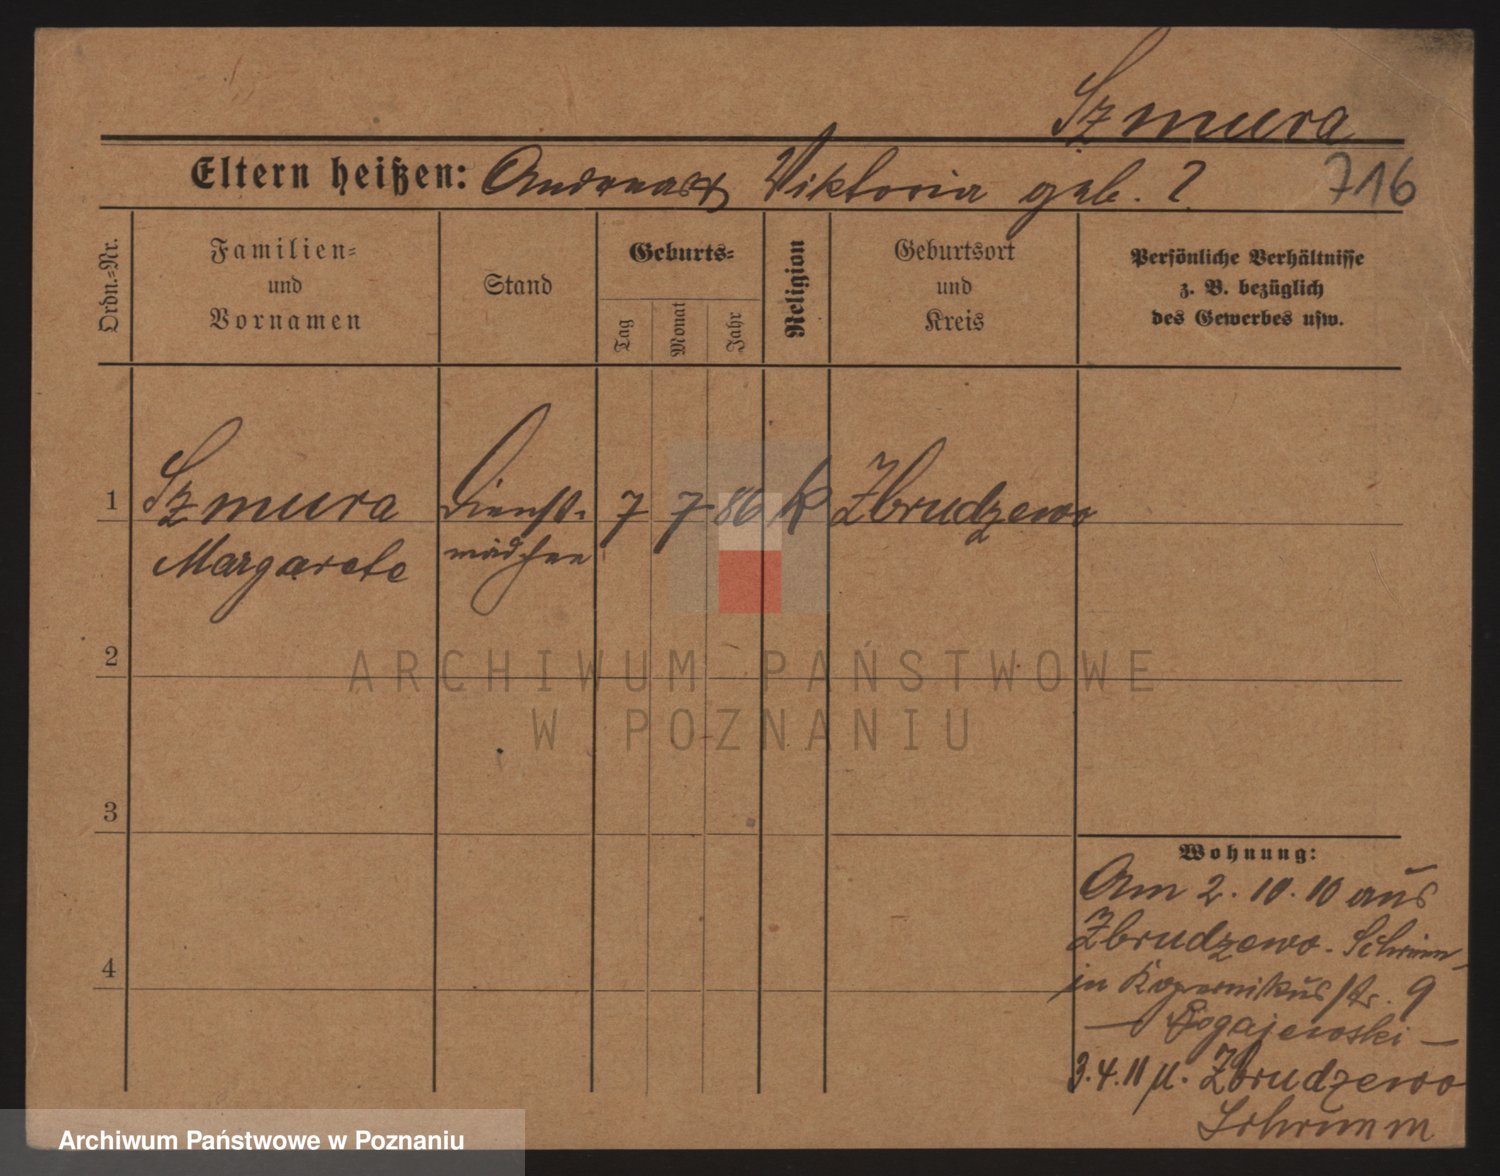 Szmura
Eltern heißen: Andreas Viktoria geb. ?
716
Ordn.=Nr.
Familien=
und
Vornamen
Stand
Geburts=
Tag
Monat
Jahr
Religion
Geburtsort
und
Kreis
Persönliche Verhältnisse
z. B. bezüglich
des Gewerbes usw.
1 Szmura Dienst- 7 7 86 k Zbrudzewo
Margarete mädchen
2
3
4
Wohnung:
Am 2. 10. 10 aus
Zbrudzewo - Schrimm
in Kopernikusstr. 9
— Rogajewski —
3.4.11 n. Zbrudzewo
Schrimm
ARCHIWUM PAŃSTWOWE
W POZNANIU
Archiwum Państwowe w Poznaniu